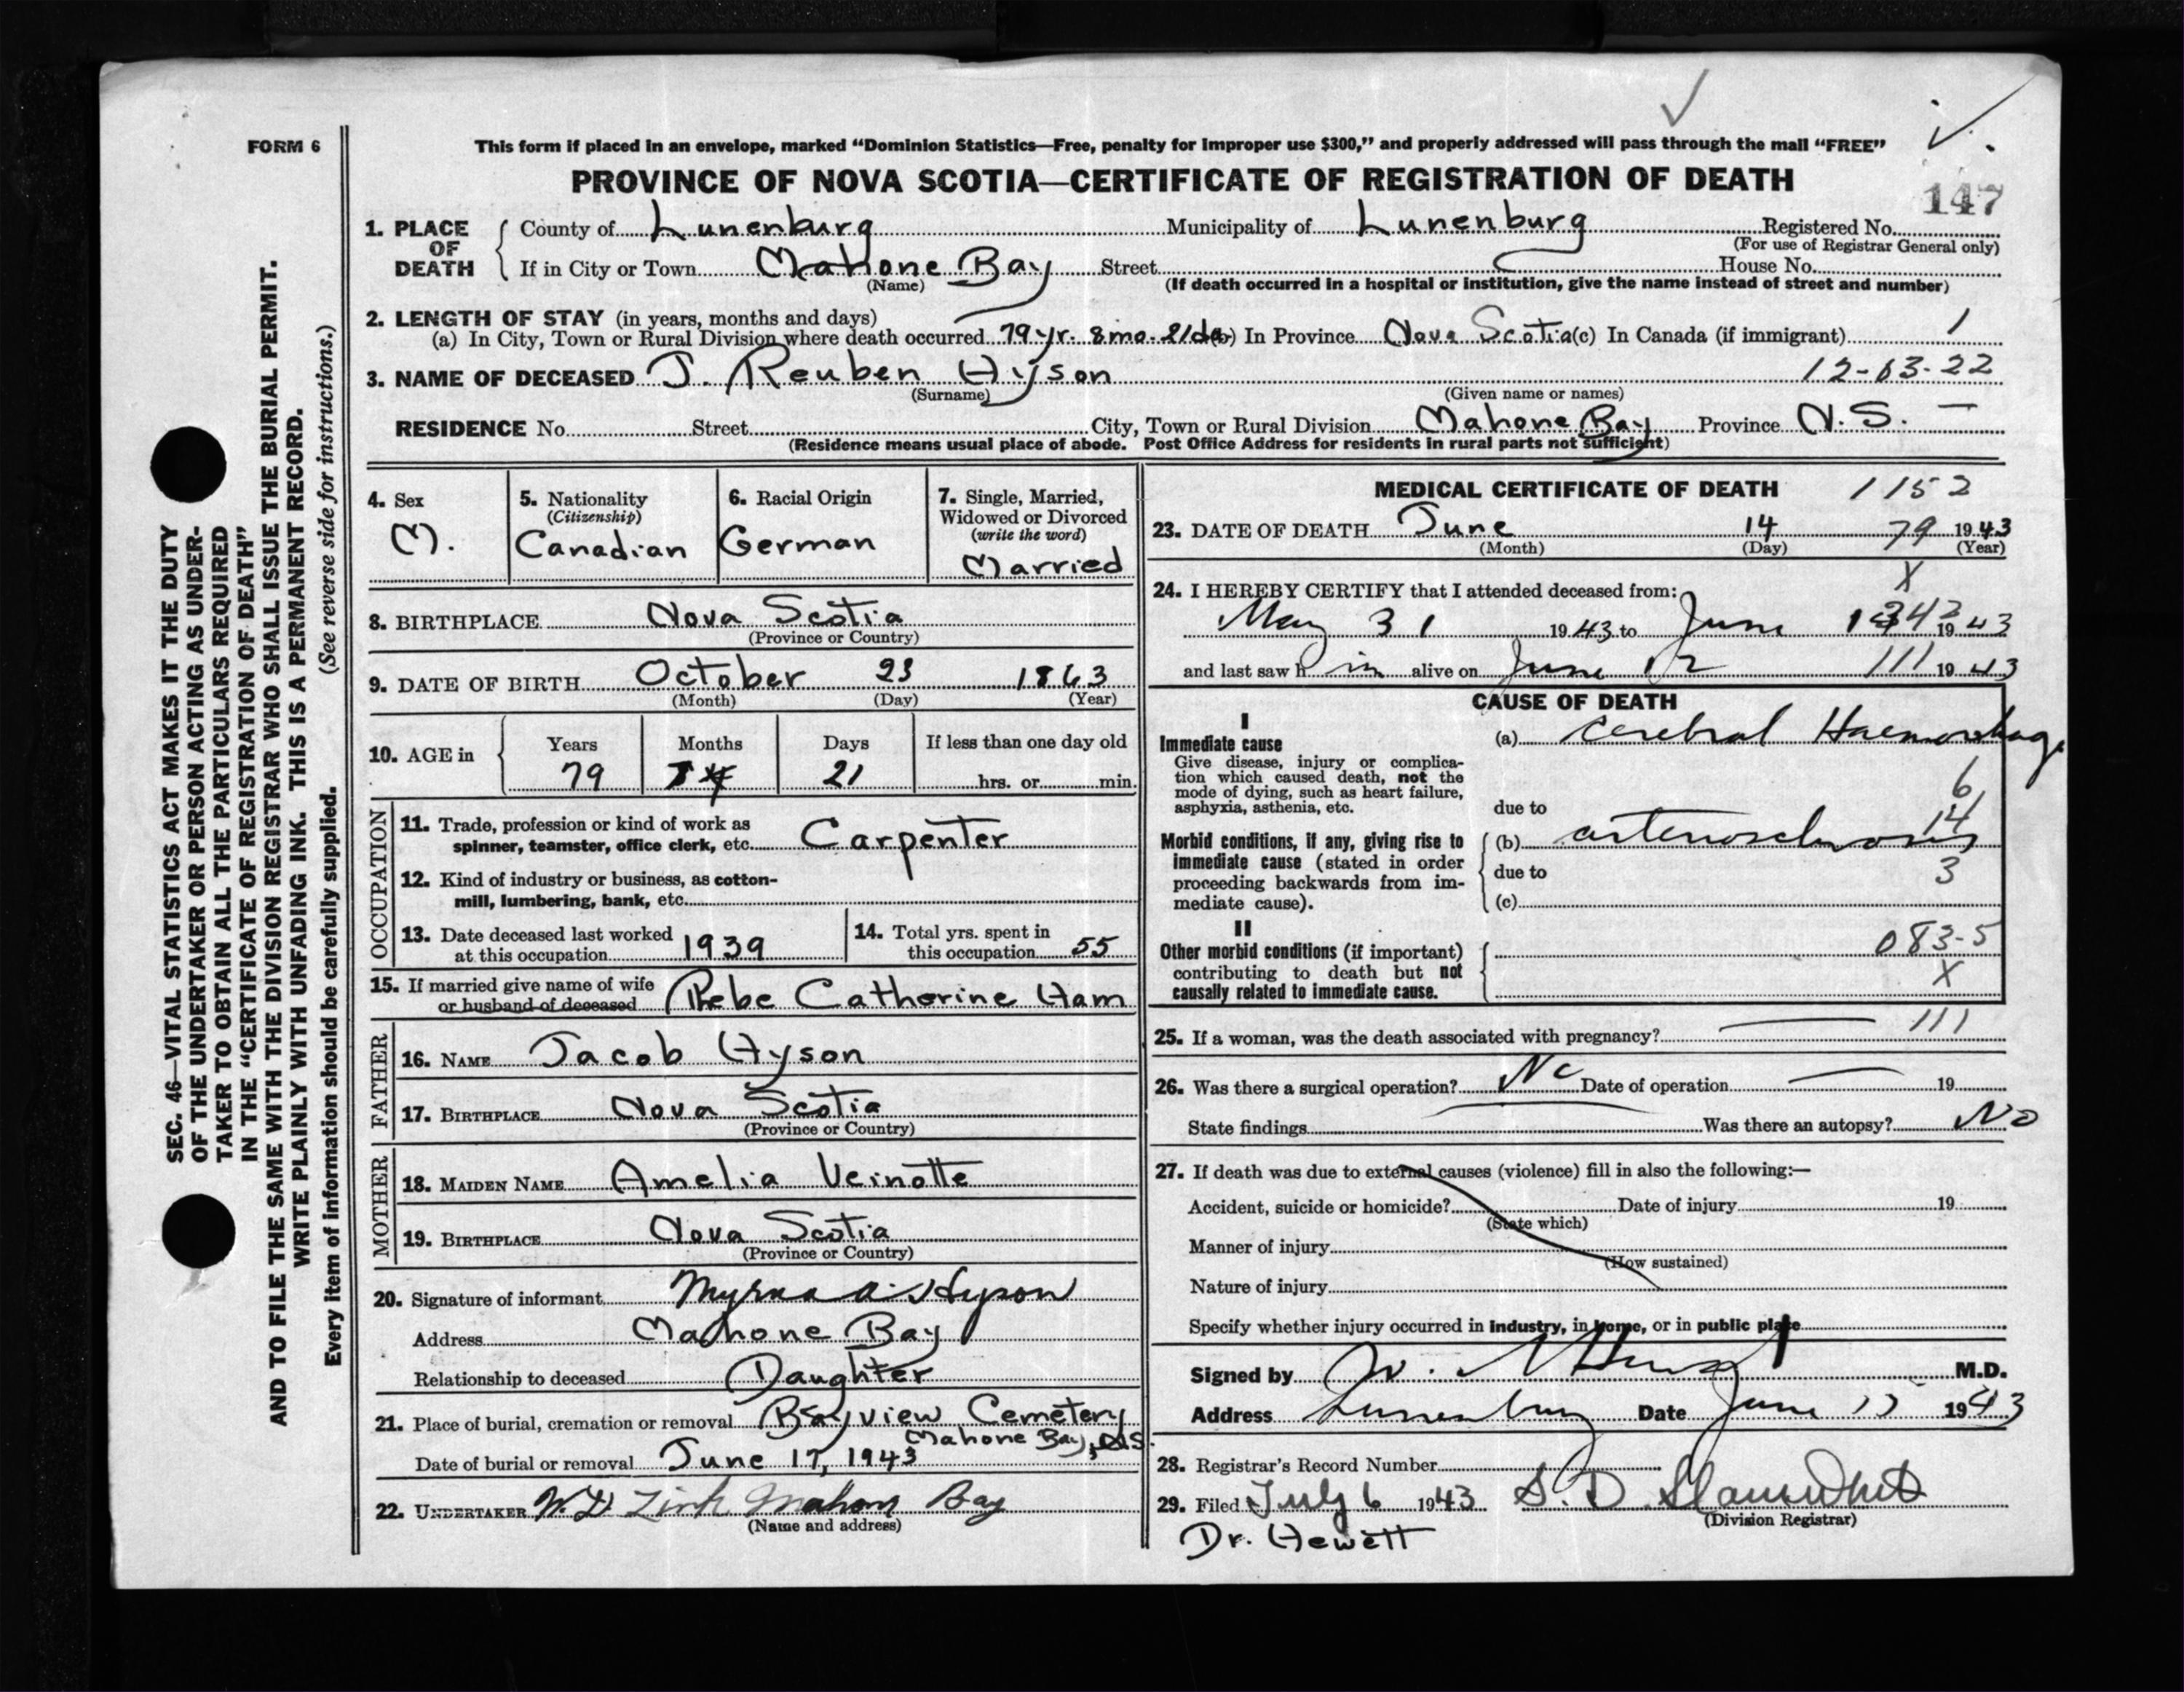 This form if placed in an envelope, marked "Dominion Statistics—Free, penalty for improper use $300," and properly addressed will pass through the mail "FREE"
FORM 6
PROVINCE OF NOVA SCOTIA—CERTIFICATE OF REGISTRATION OF DEATH
147
1. PLACE OF DEATH County of Lunenburg Municipality of Lunenburg Registered No.
(For use of Registrar General only)
If in City or Town Mahone Bay Street House No.
(Name) (If death occurred in a hospital or institution, give the name instead of street and number)
2. LENGTH OF STAY (in years, months and days)
(a) In City, Town or Rural Division where death occurred 79 yr. 8 mo. 21 da (b) In Province Nova Scotia (c) In Canada (if immigrant) 1
3. NAME OF DECEASED J. Reuben Hyson 12-03-22
(Surname) (Given name or names)
RESIDENCE No. Street City, Town or Rural Division Mahone Bay Province N.S. —
(Residence means usual place of abode. Post Office Address for residents in rural parts not sufficient)
4. Sex M.
5. Nationality (Citizenship) Canadian
6. Racial Origin German
7. Single, Married, Widowed or Divorced (write the word) Married
8. BIRTHPLACE Nova Scotia
(Province or Country)
9. DATE OF BIRTH October 23 1863
(Month) (Day) (Year)
10. AGE in Years Months Days If less than one day old
79 21 hrs. or min.
OCCUPATION
11. Trade, profession or kind of work as
spinner, teamster, office clerk, etc. Carpenter
12. Kind of industry or business, as cotton-
mill, lumbering, bank, etc.
13. Date deceased last worked
at this occupation 1939
14. Total yrs. spent in
this occupation 55
15. If married give name of wife
or husband of deceased Phebe Catherine Ham
FATHER
16. NAME Jacob Hyson
17. BIRTHPLACE Nova Scotia
(Province or Country)
MOTHER
18. MAIDEN NAME Amelia Veinotte
19. BIRTHPLACE Nova Scotia
(Province or Country)
20. Signature of informant Myrna A. Hyson
Address Mahone Bay
Relationship to deceased Daughter
21. Place of burial, cremation or removal Bayview Cemetery
Mahone Bay, N.S.
Date of burial or removal June 17, 1943
22. UNDERTAKER W.D Zink Mahone Bay
(Name and address)
MEDICAL CERTIFICATE OF DEATH 1152
23. DATE OF DEATH June 14 79 1943
(Month) (Day) (Year)
X
24. I HEREBY CERTIFY that I attended deceased from:
May 31 1943 to June 1943
and last saw h im alive on June 12 111 1943
CAUSE OF DEATH
I
Immediate cause
Give disease, injury or complica-
tion which caused death, not the
mode of dying, such as heart failure,
asphyxia, asthenia, etc.
(a) Cerebral Haemorrhage
6
due to
14
Morbid conditions, if any, giving rise to
immediate cause (stated in order
proceeding backwards from im-
mediate cause).
(b) arteriosclerosis
due to
3
(c)
II
Other morbid conditions (if important)
contributing to death but not
causally related to immediate cause.
083-5
X
111
25. If a woman, was the death associated with pregnancy?
26. Was there a surgical operation? No Date of operation — 19
State findings Was there an autopsy? No
27. If death was due to external causes (violence) fill in also the following:—
Accident, suicide or homicide? Date of injury 19
(State which)
Manner of injury
(How sustained)
Nature of injury
Specify whether injury occurred in industry, in home, or in public place
Signed by W. Hewett M.D.
Address Lunenburg Date June 15 1943
28. Registrar's Record Number
29. Filed July 6 1943 S. D.
(Division Registrar)
Dr. Hewett
SEC. 46—VITAL STATISTICS ACT MAKES IT THE DUTY
OF THE UNDERTAKER OR PERSON ACTING AS UNDER-
TAKER TO OBTAIN ALL THE PARTICULARS REQUIRED
IN THE "CERTIFICATE OF REGISTRATION OF DEATH"
AND TO FILE THE SAME WITH THE DIVISION REGISTRAR WHO SHALL ISSUE THE BURIAL PERMIT.
WRITE PLAINLY WITH UNFADING INK. THIS IS A PERMANENT RECORD.
Every item of information should be carefully supplied. (See reverse side for instructions.)